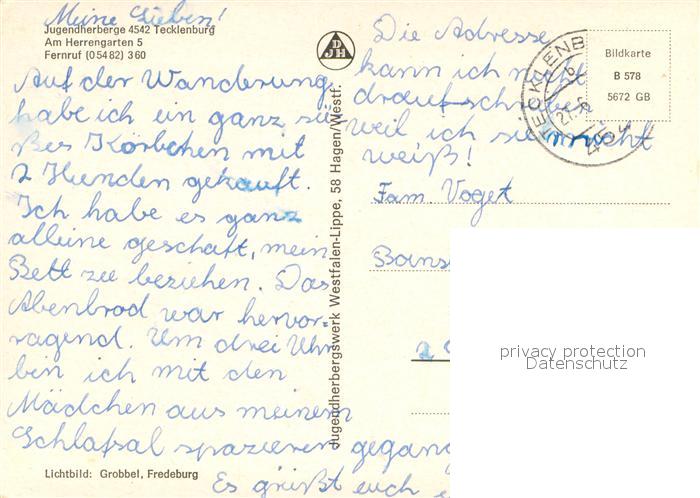 Meine Lieben!
Jugendherberge 4542 Tecklenburg
Am Herrengarten 5
Fernruf (05482) 360
Auf der Wanderung
habe ich ein ganz sü
ßes Körbchen mit
2 Hunden gekauft.
Ich habe es ganz
alleine geschaft, mein
Bett zu beziehen. Das
Abenbrod war hervor-
ragend. Um drei Uhr
bin ich mit den
Mädchen aus meinem
Schlafsal spazieren gegang
Es grüßt euch
Lichtbild: Grobbel, Fredeburg
DJH
Jugendherbergswerk Westfalen-Lippe, 58 Hagen/Westf.
Die Adresse
kann ich nicht
draufschreiben
weil ich sie nicht
weiß!
Fam. Voget
Bans
2
TECKLENB
4542
Bildkarte
B 578
5672 GB
privacy protection
Datenschutz